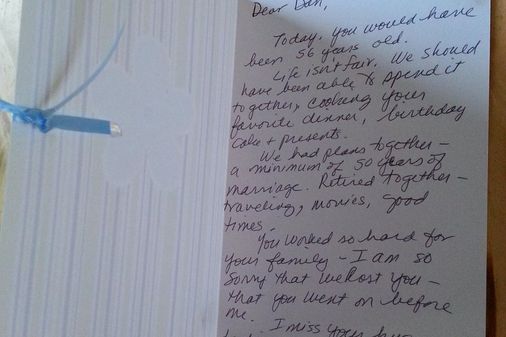 Dear Dan,
Today, you would have
been 56 years old.
Life isn't fair. We should
have been able to spend it
together, cooking your
favorite dinner, birthday
cake + presents.
We had plans together -
a minimum of 50 years of
marriage. Retired together -
traveling, movies, good
times.
You worked so hard for
your family - I am so
sorry that we lost you -
that you went on before
me.
I miss your